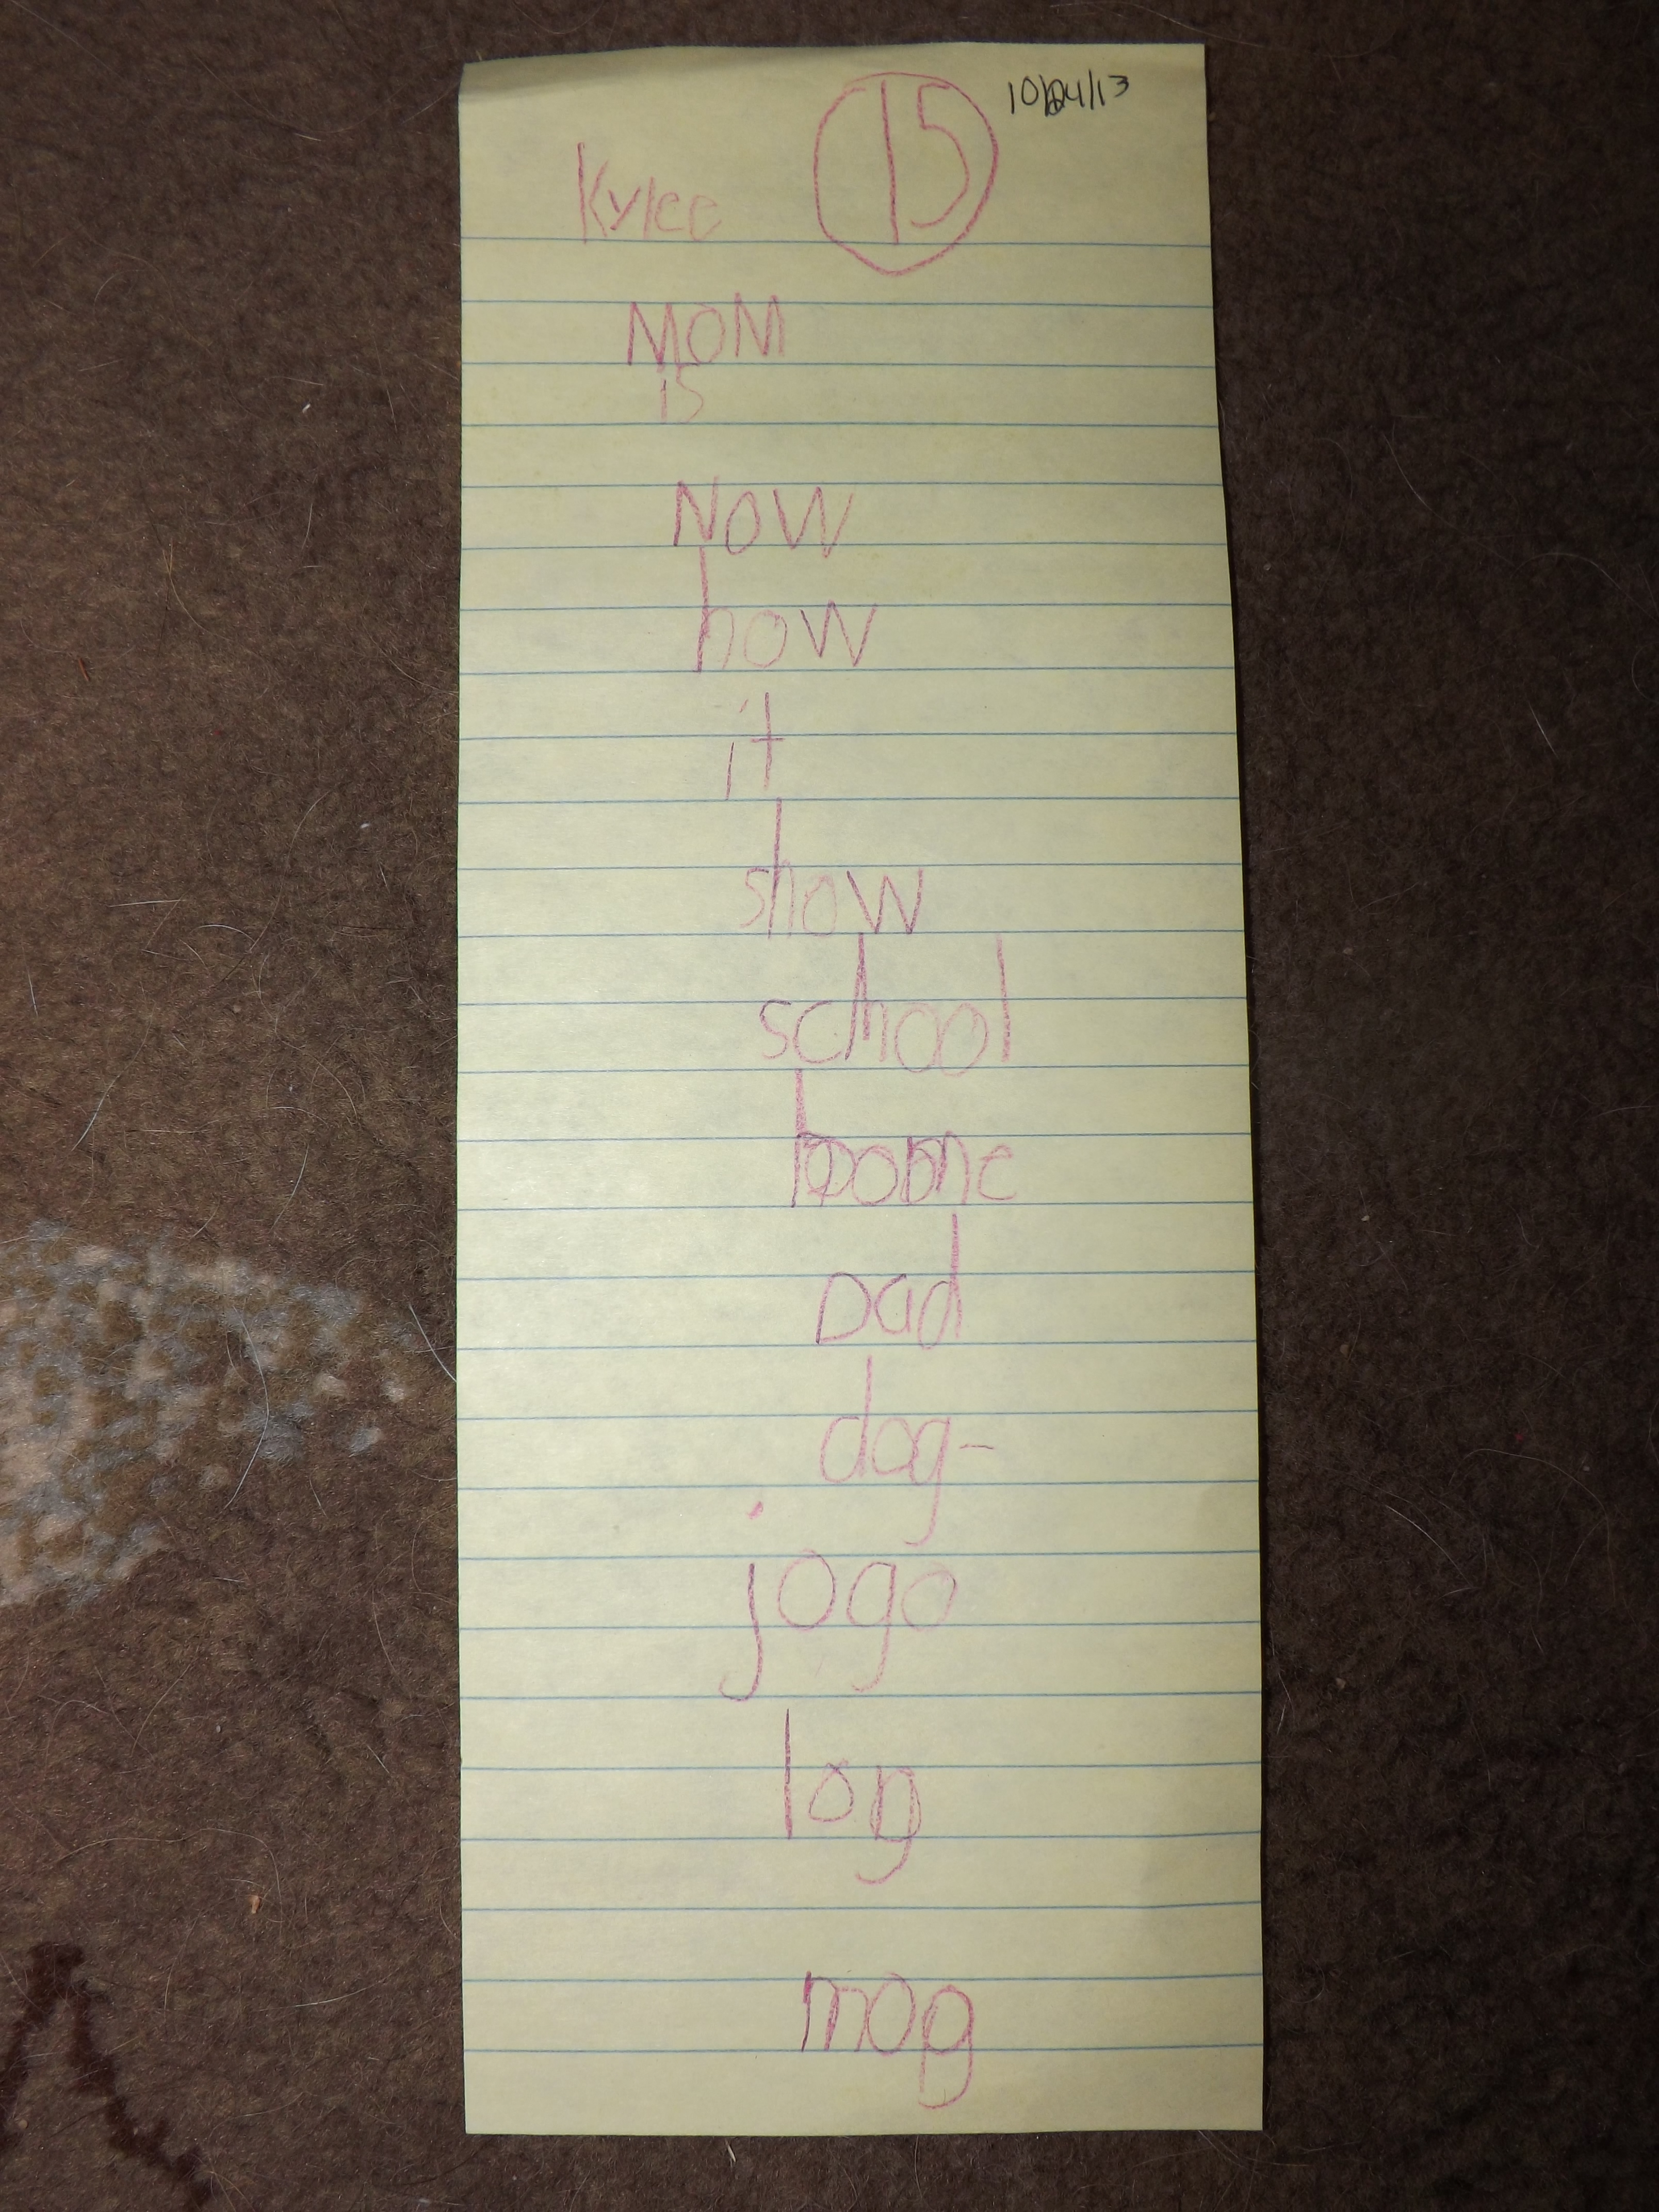 10/24/13
Kylee 15
MOM
is
NOW
how
it
show
school
home
Dad
dog-
jogo
log
mog